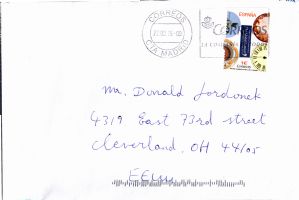 CORREOS
CTA. MADRID
ESPAÑA
CORREOS
1€
Mr. Donald Jordonek
4319 East 73rd street
Cleverland, OH 44105
EEUU